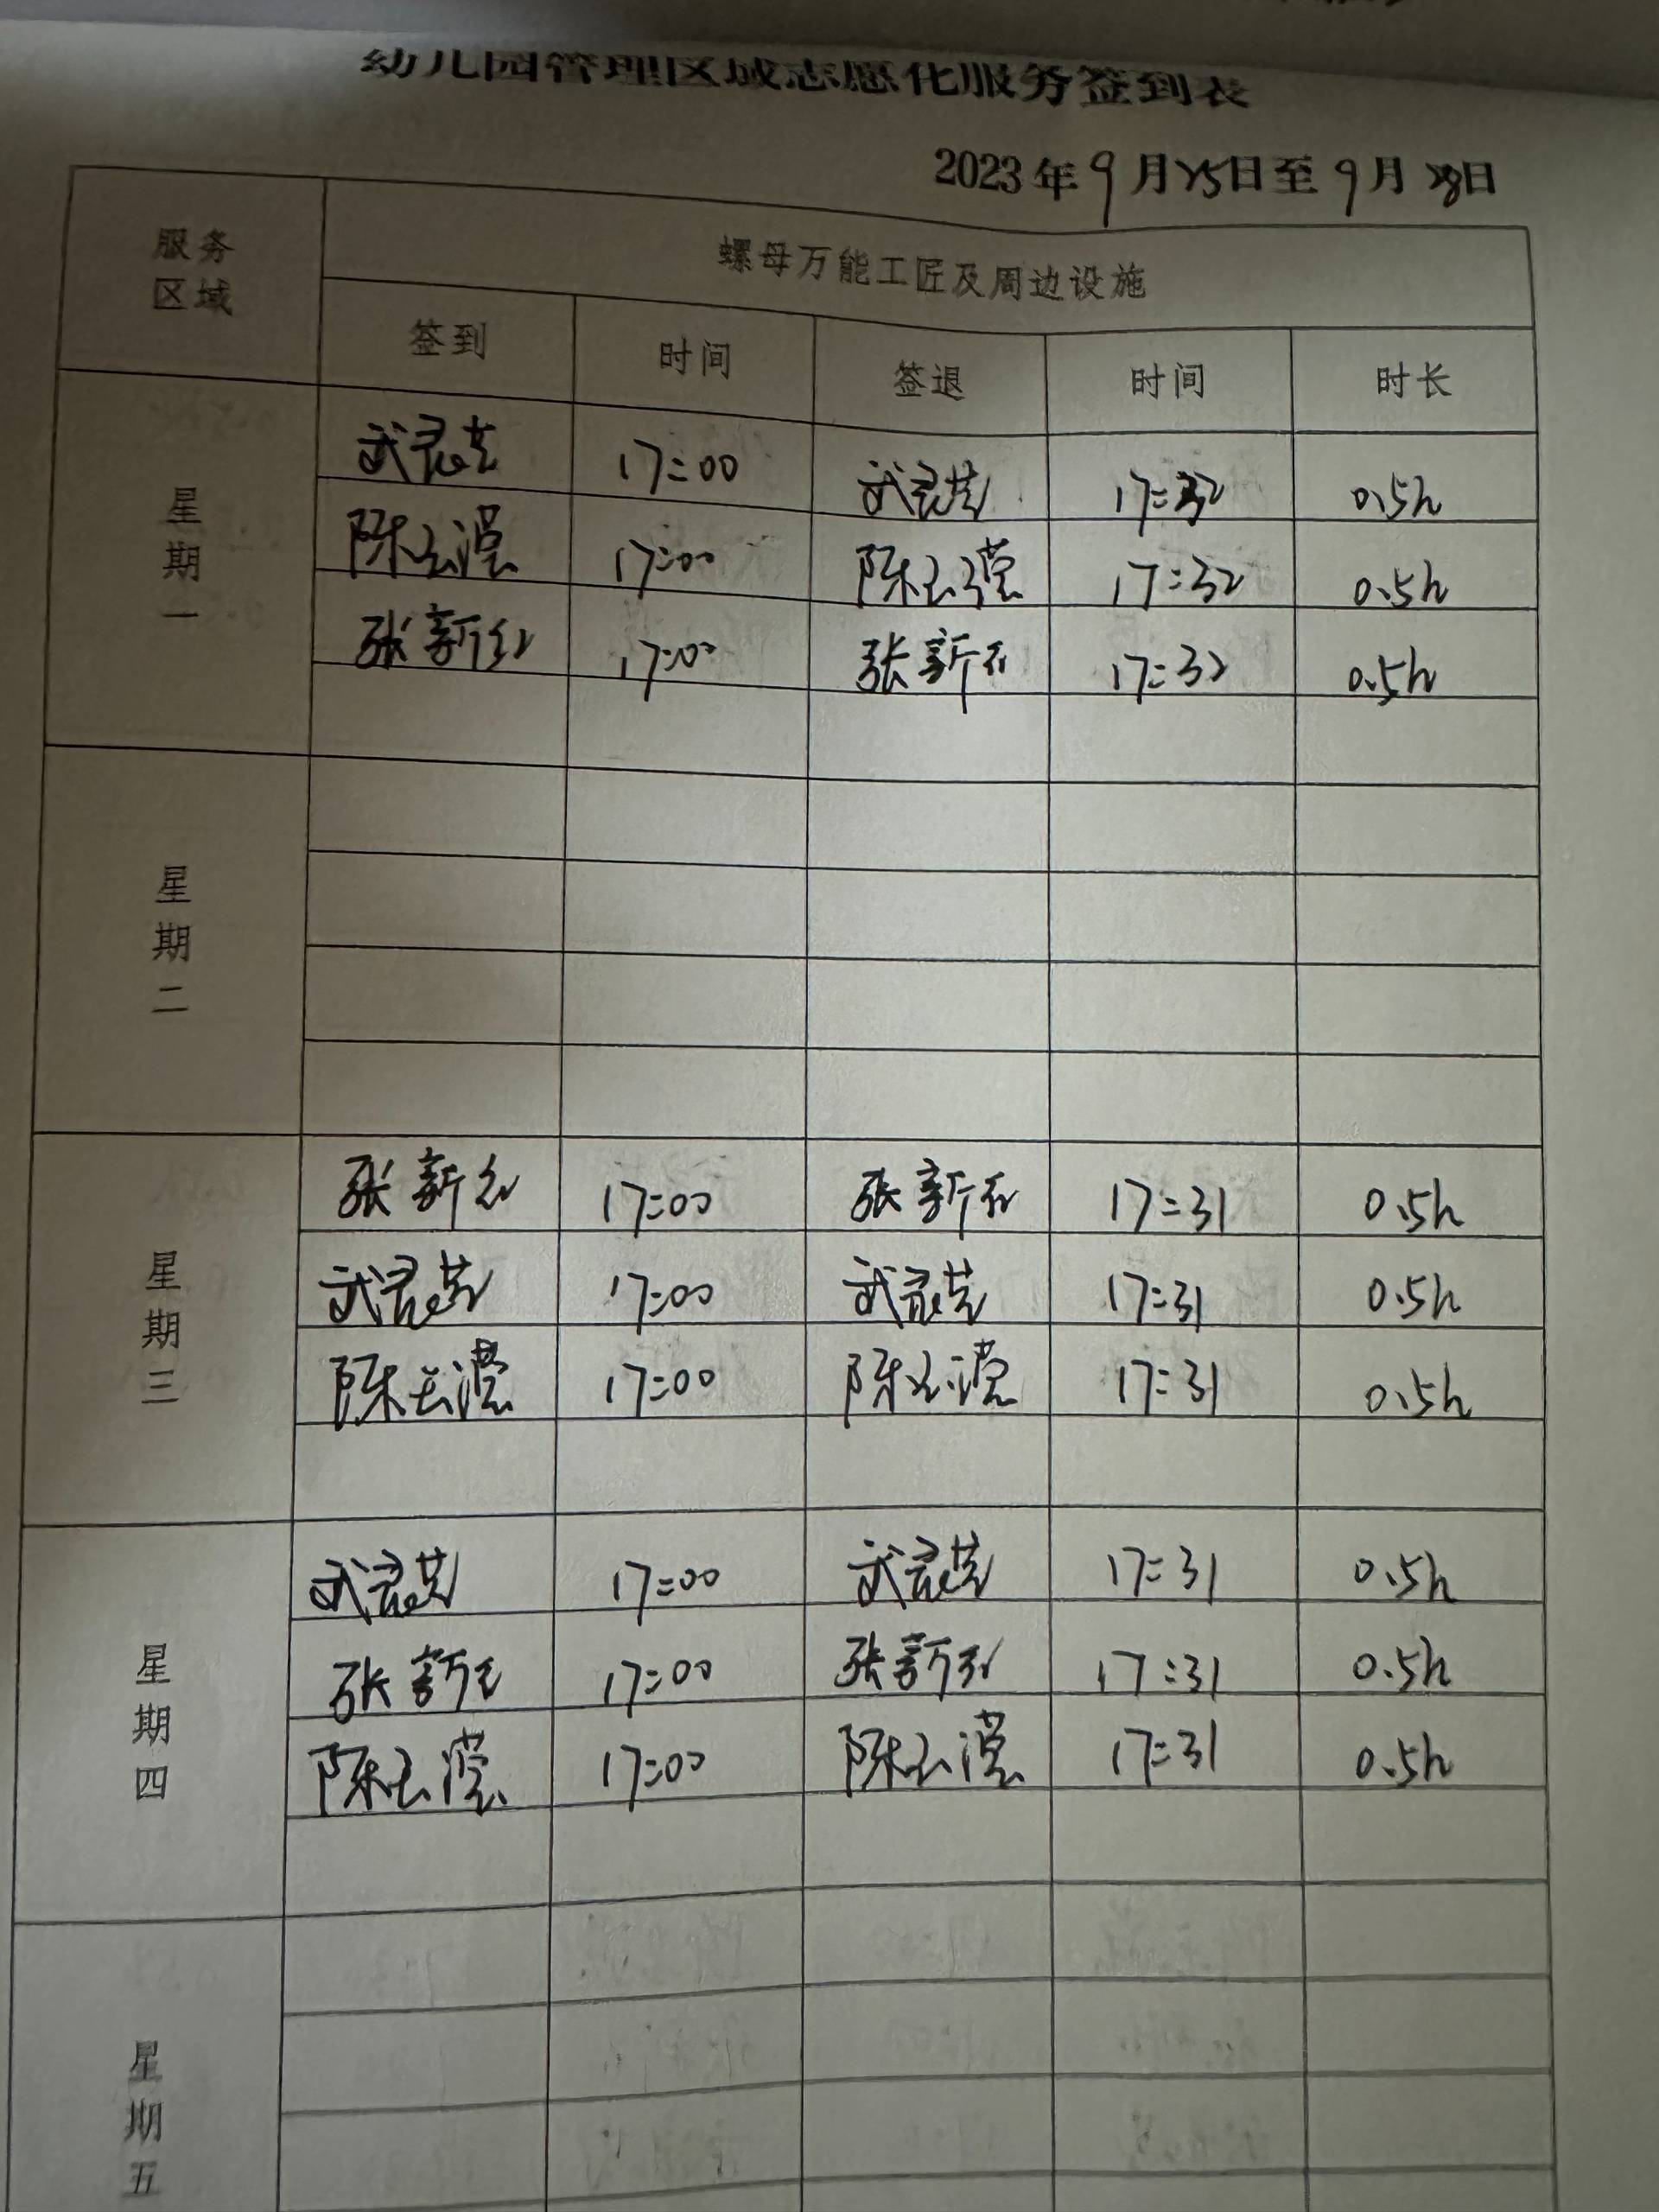 幼儿园管理区域志愿化服务签到表
2023年9月25日至9月28日
服务区域 螺母万能工匠及周边设施
签到 时间 签退 时间 时长
星期一
武灵芝 17:00 武灵芝 17:32 0.5h
陈玉滢 17:00 陈玉滢 17:32 0.5h
张新红 17:00 张新红 17:32 0.5h
星期二
星期三
张新红 17:00 张新红 17:31 0.5h
武灵芝 17:00 武灵芝 17:31 0.5h
陈玉滢 17:00 陈玉滢 17:31 0.5h
星期四
武灵芝 17:00 武灵芝 17:31 0.5h
张新红 17:00 张新红 17:31 0.5h
陈玉滢 17:00 陈玉滢 17:31 0.5h
星期五